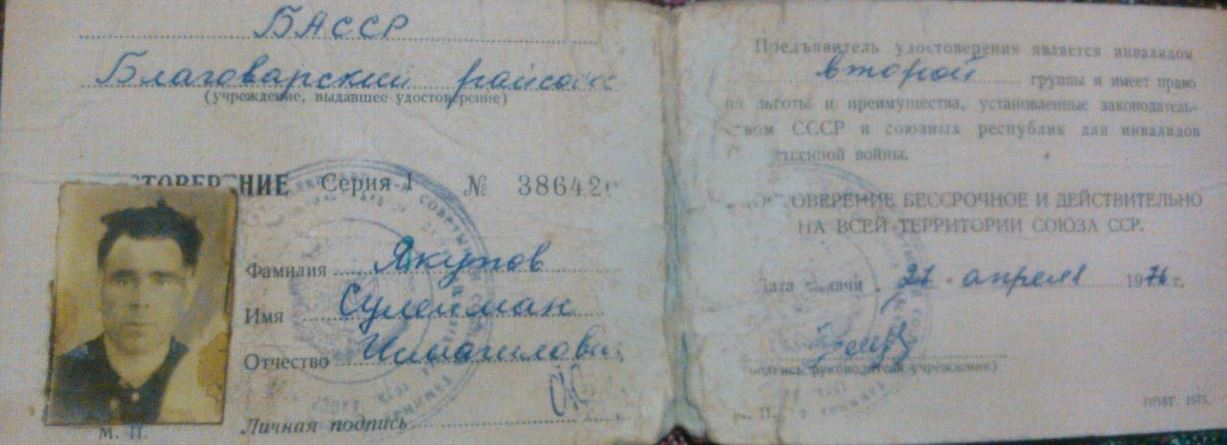 БАССР
Благоварский райсобес
(учреждение, выдавшее удостоверение)
УДОСТОВЕРЕНИЕ Серия 1 № 38642
Фамилия Якупов
Имя Сулейман
Отчество Исмагилович
Личная подпись
М. П.
Предъявитель удостоверения является инвалидом
второй группы и имеет право
на льготы и преимущества, установленные законодатель-
ством СССР и союзных республик для инвалидов
Отечественной войны.
УДОСТОВЕРЕНИЕ БЕССРОЧНОЕ И ДЕЙСТВИТЕЛЬНО
НА ВСЕЙ ТЕРРИТОРИИ СОЮЗА ССР.
Дата выдачи 27 апреля 1976 г.
(подпись руководителя учреждения)
М. П.